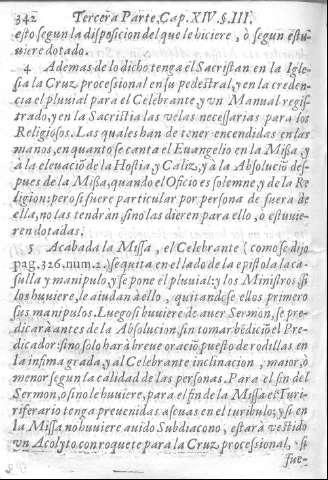 342 Tercera Parte, Cap. XIV. §. III.
esto segun la disposicion del que le hiciere, ò segun estu-
uiere dotado.
4 Ademas de lo dicho tenga èl Sacristan en la Igle-
sia la Cruz processional en su pedestral, y en la creden-
cia el pluuial para el Celebrante, y vn Manual regis-
trado, y en la Sacristia las velas necessarias para los
Religiosos. Las quales han de tener encendidas en las
manos, en quanto se canta el Euangelio en la Missa, y
à la eleuaciõ de la Hostia y Caliz, y à la Absoluciõ des-
pues de la Missa, quando el Oficio es solemne, y de la Re
ligion: pero si fuere particular por persona de fuera de
ella, no las tendràn sino las dieren para ello, o estuuie-
ren dotadas.
5 Acabada la Missa, el Celebrante (como se dijo
pag. 326. num. 2.) se quita en el lado de la epistola la ca-
sulla y manipulo, y se pone el pluuial: y los Ministros si
los huuiere, le aiudan à ello, quitandose ellos primero
sus manipulos. Luego si huuiere de auer Sermon, se pre-
dicarà antes de la Absolucion, sin tomar bẽdiciõ el Pre-
dicador: sino solo harà breue oraciõ puesto de rodillas en
la infima grada, y al Celebrante inclinacion, maior, ò
menor segun la calidad de las personas. Para el fin del
Sermon, o sino le huuiere, para el fin de la Missa el Tu-
riferario tenga preuenidas ascuas en el turibulo; y si en
la Missa no huuiere auido Subdiacono, estarà vestido
vn Acolyto con roquete para la Cruz processional, si
fue-